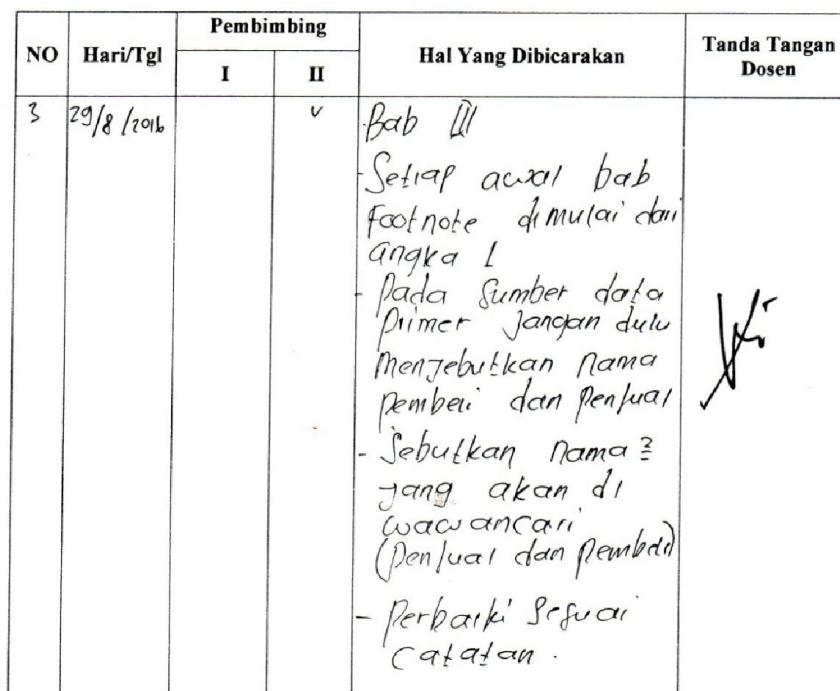 NO Hari/Tgl Pembimbing Hal Yang Dibicarakan Tanda Tangan
Dosen
I II
3 29/8/2016 v Bab III
- Setiap awal bab
footnote dimulai dari
angka 1
- Pada Sumber data
primer jangan dulu
menyebutkan nama
pembeli dan penjual
- Sebutkan nama2
yang akan di
wawancari
(penjual dan pembeli)
- Perbaiki Sesuai
Catatan.